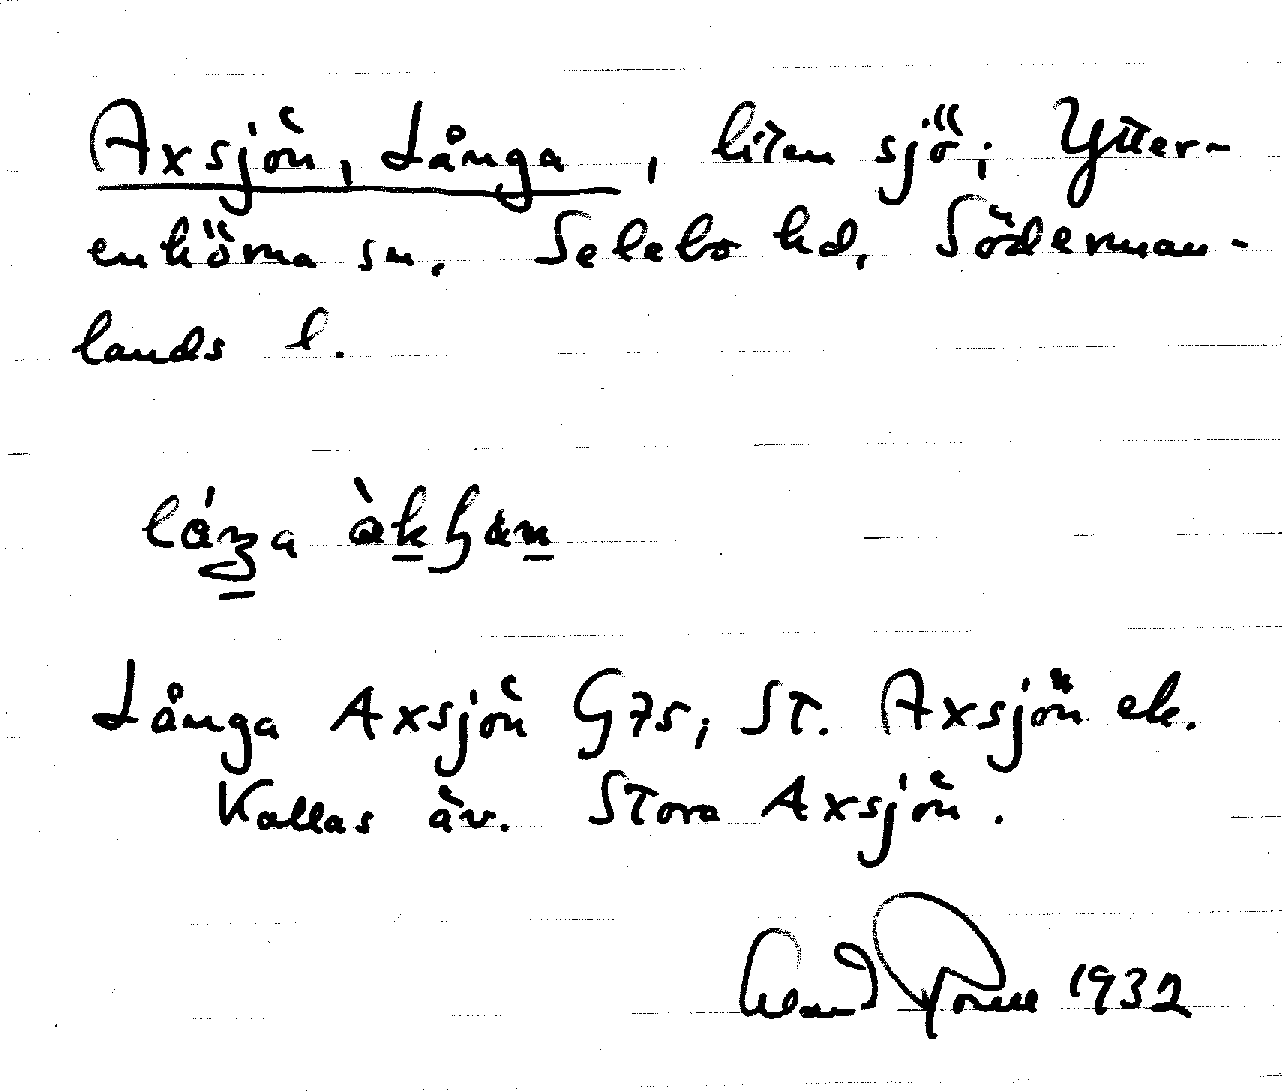 Axsjön, Långa, liten sjö; Ytter-
enhörna sn. Selebo hd, Söderman-
lands l.
Långa Axsjön G75; St. Axsjön ek.
Kallas äv. Stora Axsjön.
1932